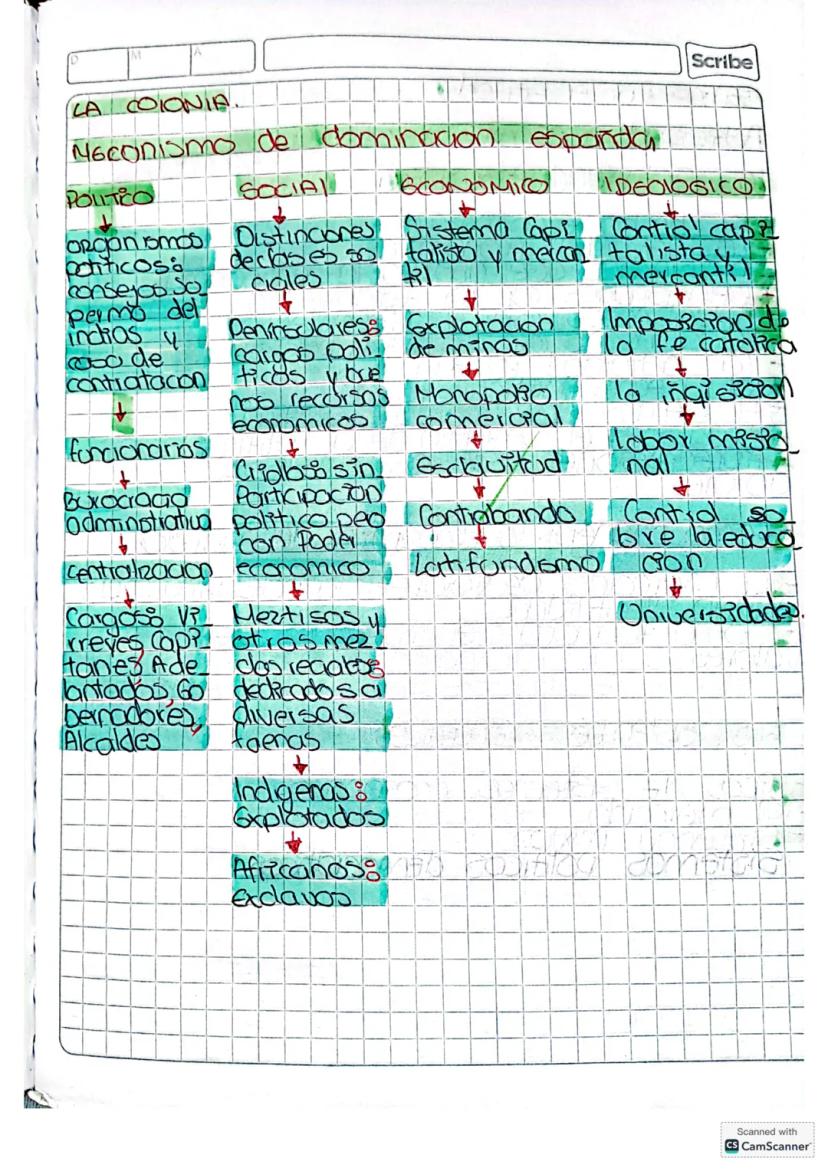 D M A
Scribe
LA COLONIA.
Meconismo de dominacion española
POLITICO
organismos
politicos:
consejos so
permo del
indios y
casa de
contratacion
funcionarios
Burocracia
administrativa
centralizacion
Cargos: Vi_
rreyes, Capi_
tanes, Ade_
lantados, Go
bernadores,
Alcaldes
SOCIAL
Distinciones
declases so
ciales
Peninsulares:
cargos polí_
ticos y bue
nos recursos
economicos
Criollos: sin
Participación
politico peo
con Poder
economico
Meztisos y
otros mez_
clas reciales:
dedicados a
diversas
faenas
Indigenas:
Explotados
Africanos:
exclavos
ECONOMICO
Sistema Capi
talisto y mercan
til
Explotacion
de minas
Monopolio
comercial
Esclauitud
Contrabando
Latifundismo
IDEOLOGICO
Control capi_
talista y
mercantil
Imposicion de
la fe catolica
la inqisicion
Labor misio_
nal
Control so_
bre la educa_
cion
Universidades.
Scanned with
CS CamScanner